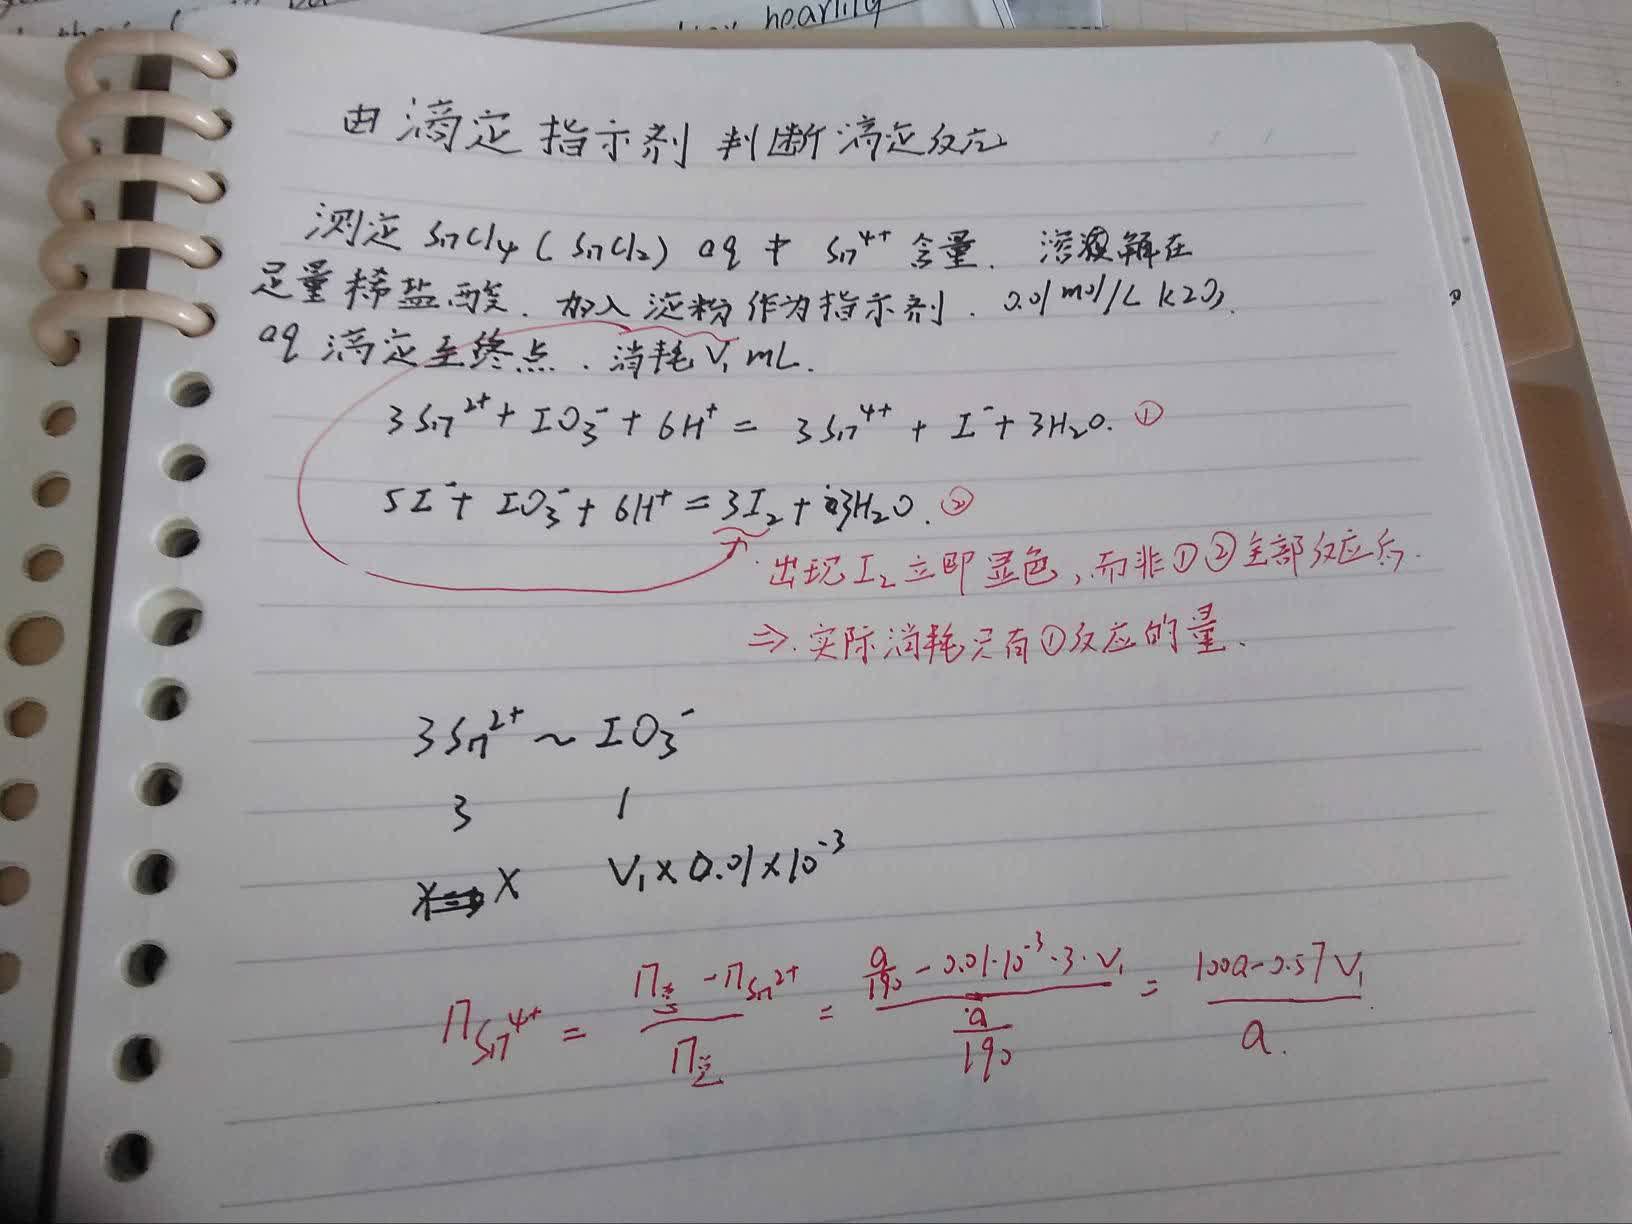 hearlily
由滴定指示剂判断滴定反应
测定 SnCl4 (SnCl2) aq 中 Sn⁴⁺ 含量. 溶液解在
足量稀盐酸. 加入淀粉作为指示剂. 0.01 mol/L KIO3
aq 滴定至终点. 消耗 V₁ mL.
3Sn²⁺ + IO₃⁻ + 6H⁺ = 3Sn⁴⁺ + I⁻ + 3H₂O. ①
5I⁻ + IO₃⁻ + 6H⁺ = 3I₂ + 3H₂O. ②
出现 I₂ 立即显色, 而非①②全部反应后.
⇒. 实际消耗只有①反应的量.
3Sn²⁺ ~ IO₃⁻
3 1
X V₁×0.01×10⁻³
n Sn⁴⁺ = (n总 - n Sn²⁺)/n总 = (a/190 - 0.01·10⁻³·3·V₁)/(a/190) = (100a-0.57V₁)/a.